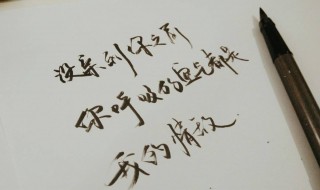 没亲到你之前
你呼吸的空气都是
我的情敌